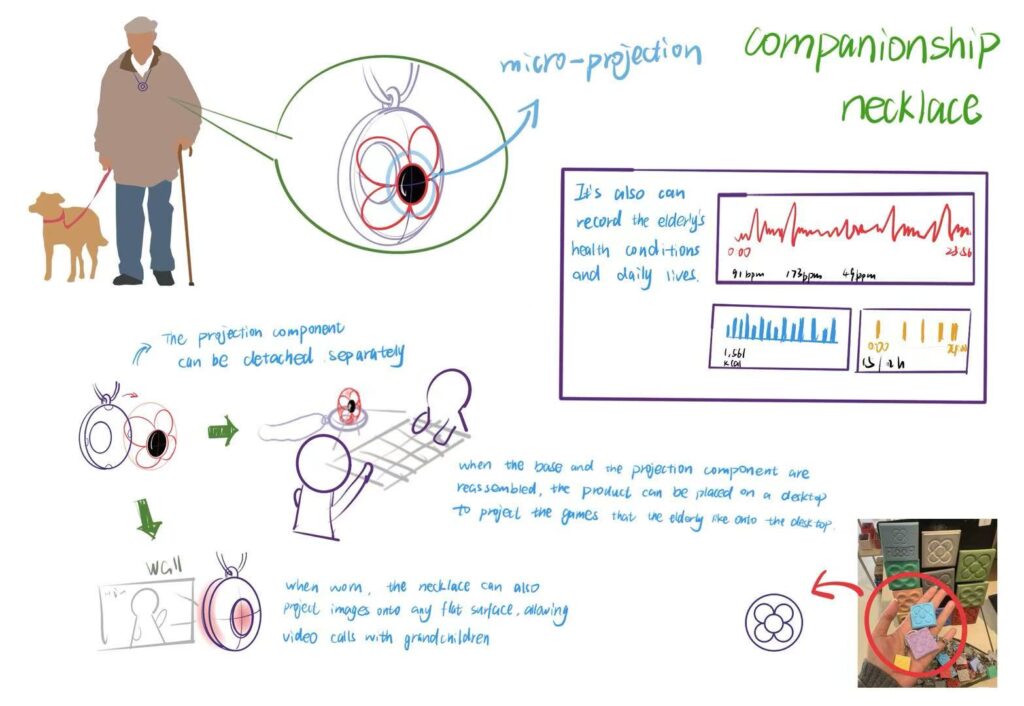 companionship
necklace
micro-projection
It's also can
record the elderly's
health conditions
and daily lives.
0:00
23:56
91bpm 173bpm 49bpm
1,561
kcal
0:00
The projection component
can be detached separately
when the base and the projection component are
reassembled, the product can be placed on a desktop
to project the games that the elderly like onto the desktop.
wall
when worn, the necklace can also
project images onto any flat surface, allowing
video calls with grandchildren